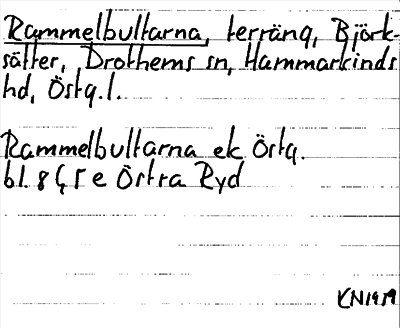 Rammelbultarna, terräng, Björk-
sätter, Drothems sn, Hammarkinds
hd, Östg.l.
Rammelbultarna ek Östg.
bl. 8 Ç f e Östra Ryd